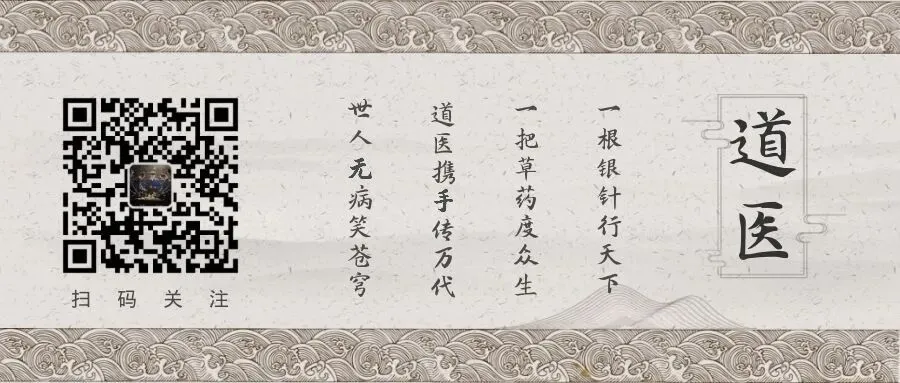 道医
一根银针行天下
一把草药度众生
道医携手传万代
世人无病笑苍穹
扫码关注